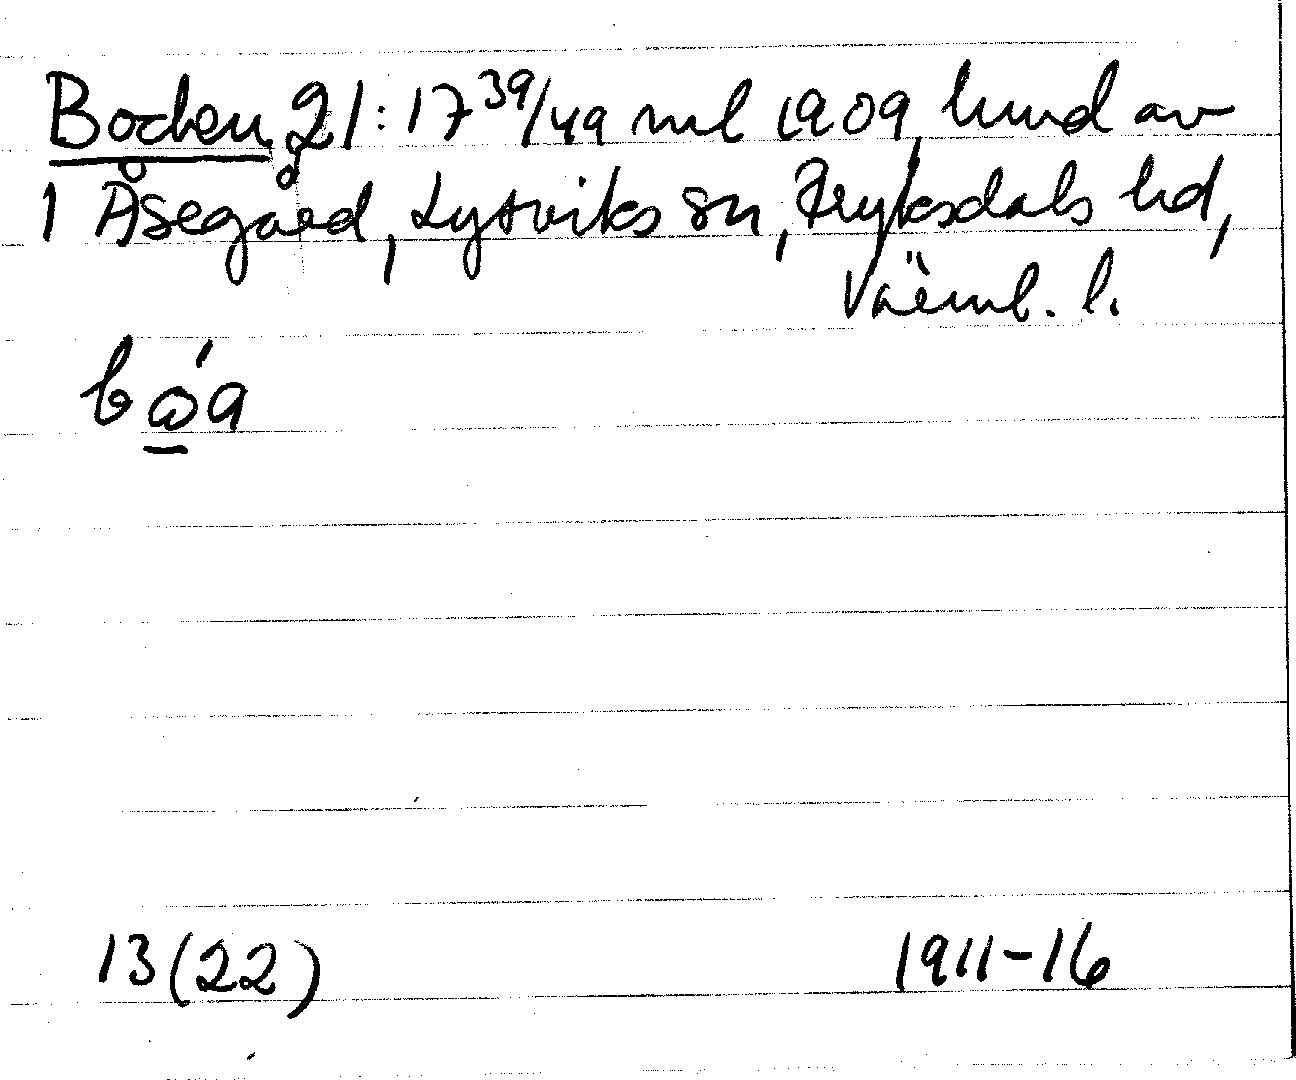 Boden 21:17 39/49 ml 1909, hmd av
1 Åsegård, Lysviks sn, Fryksdals hd,
Värml. l.
bòa
13(22) 1911-16